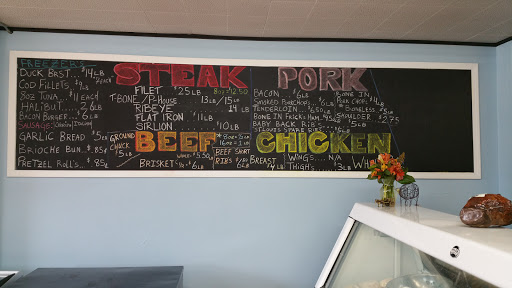 FREEZERS
DUCK BRST... $14LB
COD FILLETS $9LB
8OZ TUNA $11 EACH
HALIBUT... 26LB
BACON BURGER... $6LB
SAUSAGE:
GARLIC BREAD $5
BRIOCHE BUN .85¢
PRETZEL ROLLS .85¢
STEAK
FILET $25LB 8oz=12.50
T-BONE/P-HOUSE 13LB/15LB
RIBEYE 14LB
FLAT IRON $11LB
SIRLION $10LB
GROUND CHUCK $5LB
BEEF
WHOLE $5.50
BRISKET $6LB
BEEF SHORT RIBS
PORK
BACON $6LB
SMOKED PORKCHOPS $6LB
TENDERLOIN $6.50LB
BONE IN
BABY BACK RIBS
ST LOUIS SPARE RIBS
BONE IN PORK CHOP $4LB
BONELESS $5LB
SHOULDER $2.75
CHICKEN
BREAST $4LB
WINGS... N/A
THIGHS... $3LB